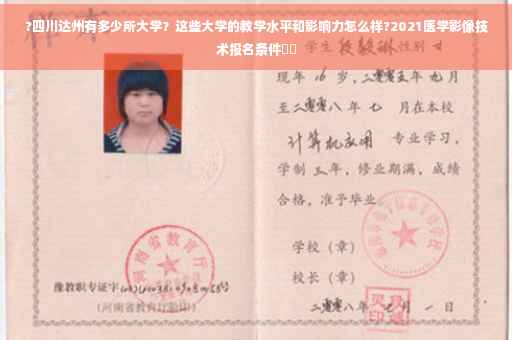 ?四川达州有多少所大学？这些大学的教学水平和影响力怎么样?2021医学影像技
术报名条件▯▯
学生 性别 女
现年 16 岁，二零零五年 九 月
至二零零八年 七 月在本校
计算机应用 专业学习，
学制 三 年，修业期满，成绩
合格，准予毕业
学校（章）
校长（章）
二零零八年 月 一 日
河南省教育厅
豫教职专证字
（河南省教育厅验印）